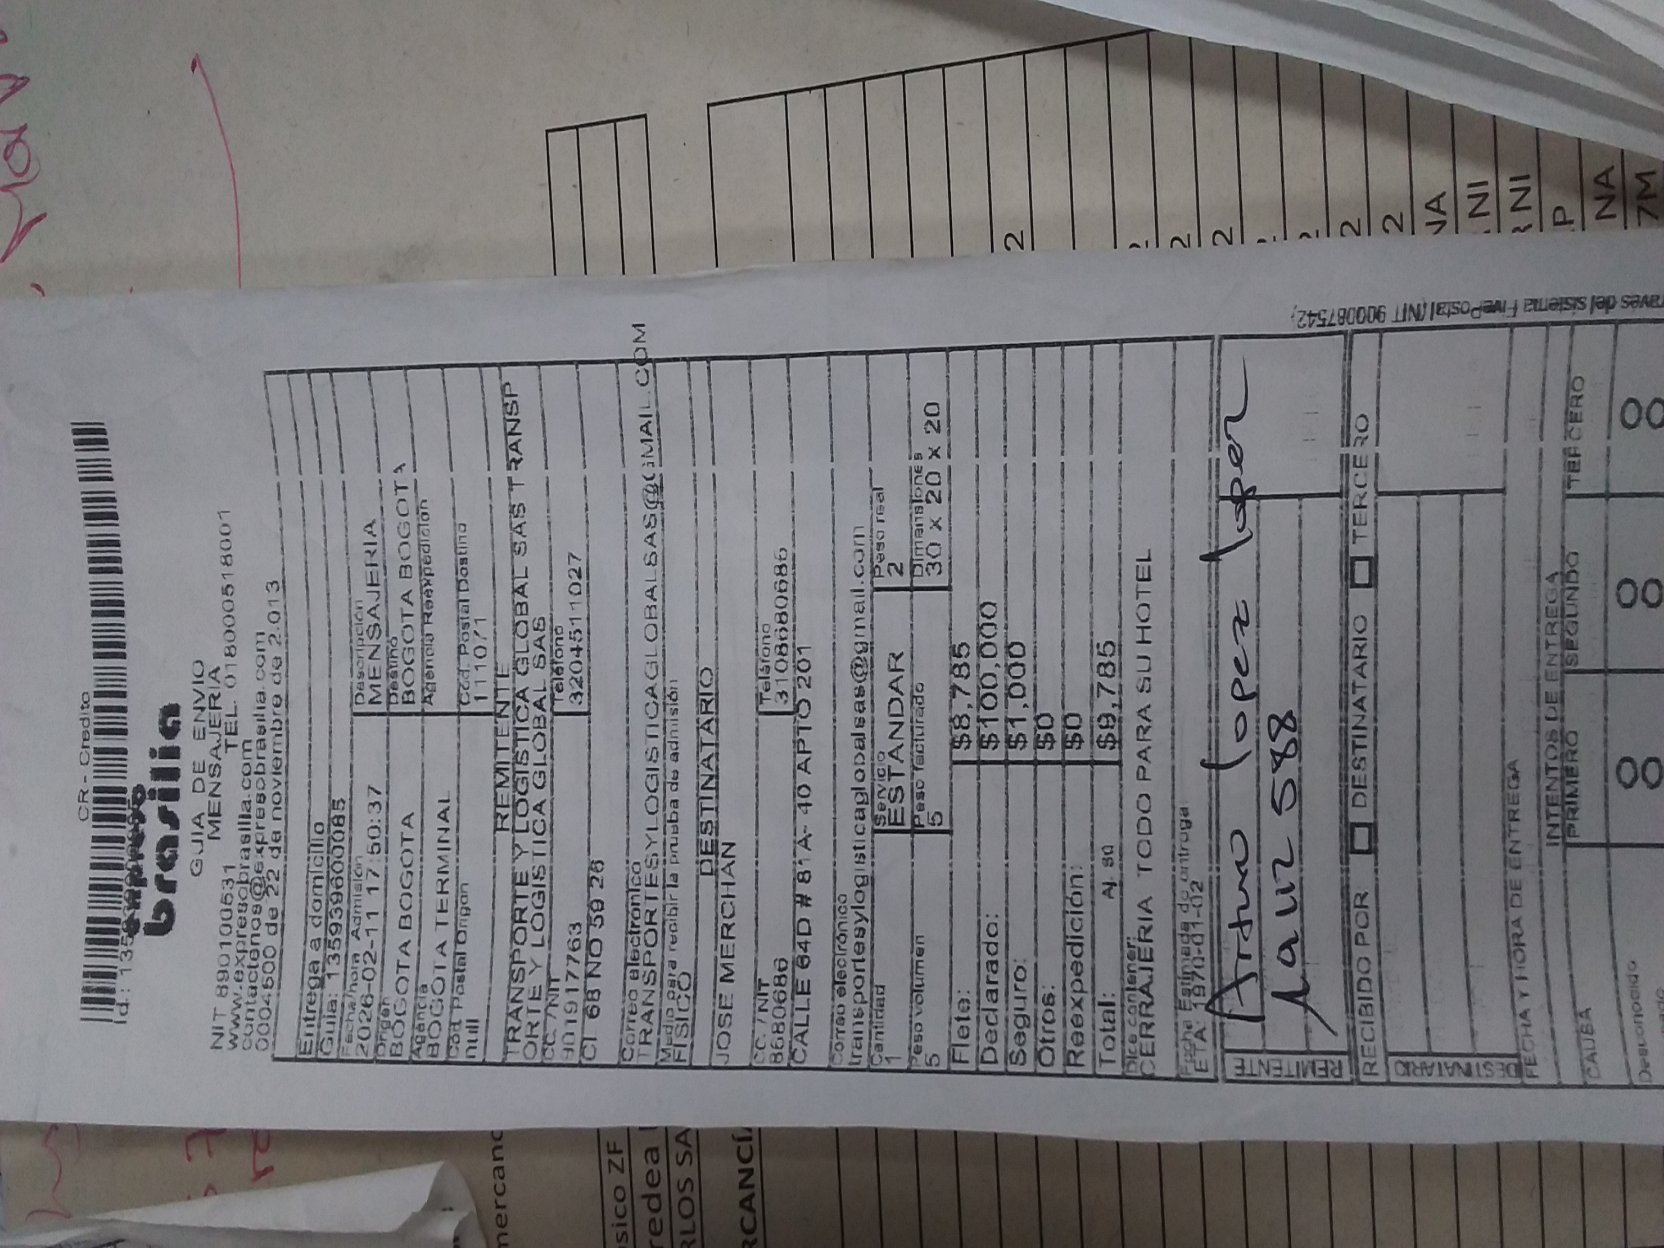 CR - Credito
brasilia
GUIA DE ENVIO
MENSAJERIA
NIT 8901005​31 TEL. 018000518001
www.expresobrasilia.com
contactenos@expresobrasilia.com
0004500 de 22 de noviembre de 2.013
Entrega a domicilio
Guia: 13593960​0085
Fecha/hora Admisión Descripción
2026-02-11 17:50:37 MENSAJERIA
Origen Destino
BOGOTA BOGOTA BOGOTA BOGOTA
Agencia Agencia Reexpedición
BOGOTA TERMINAL
Cód. Postal Origen Cód. Postal Destino
null 111071
REMITENTE
TRANSPORTE Y LOGISTICA GLOBAL SAS TRANSP
ORTE Y LOGISTICA GLOBAL SAS
CC. / NIT Teléfono
901917763 3204511027
Cl 68 NO 59 26
Correo electrónico
TRANSPORTESYLOGISTICAGLOBALSAS@GMAIL.COM
Medio para recibir la prueba de admisión
FISICO
DESTINATARIO
JOSE MERCHAN
CC. / NIT Teléfono
8680686 3108680686
CALLE 64D # 81A- 40 APTO 201
Correo electrónico
transportesylogisticaglobalsas@gmail.com
Cantidad Servicio Peso real
1 ESTANDAR 2
Peso volumen Peso facturado Dimensiones
5 5 30 x 20 x 20
Flete: $8,785
Declarado: $100,000
Seguro: $1,000
Otros: $0
Reexpedición: $0
Total: Aj. $0 $9,785
Dice contener:
CERRAJERIA TODO PARA SU HOTEL
Fecha Estimada de entrega
ETA: 1970-01-02
REMITENTE
Arturo lopez lopez
RECIBIDO POR DESTINATARIO TERCERO
DESTINATARIO
FECHA Y HORA DE ENTREGA
INTENTOS DE ENTREGA
CAUSA PRIMERO SEGUNDO TERCERO
Desconocido 00 00 00
raves del sistema FivePostal (NIT 900087542,
sico ZF
redea
RLOS SA
RCANCÍ
mercanc
2
2
2
2
2
NI
NI
P
NA
7M